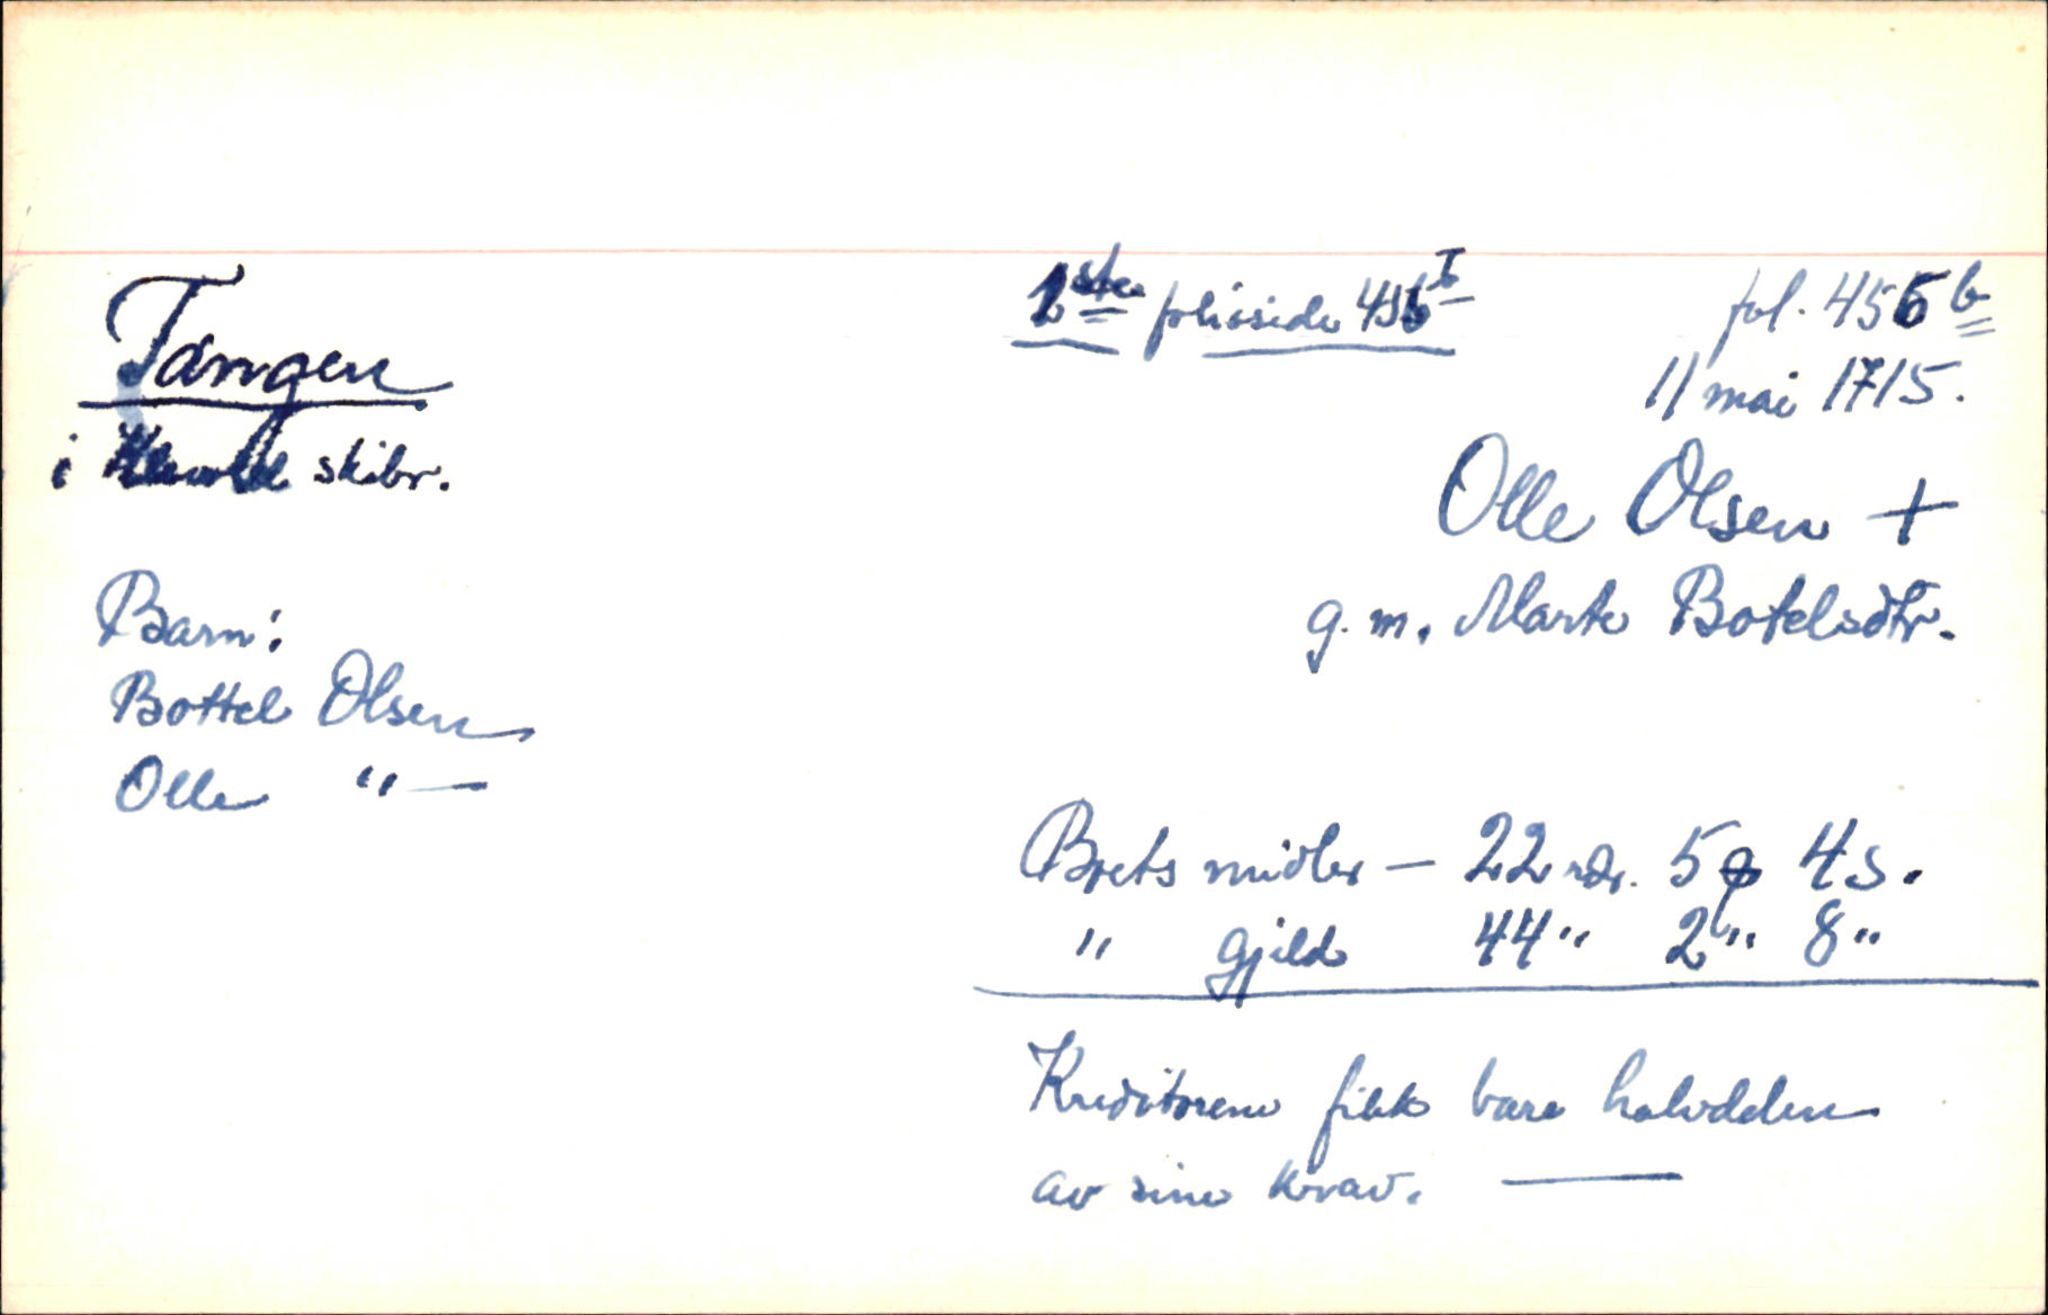 Tangen
i skibr.
1ste folioside 456 I
fol. 456 b
11 mai 1715.
Olle Olsen +
g. m. Marte Botelsdtr.
Barn:
Bottel Olsen
Olle " —
Boets midler — 22 rdr. 5 ƍ 4 s.
" Gjeld 44 " 2 " 8 "
Kreditorene fikk bare halvdelen
av sine krav. —